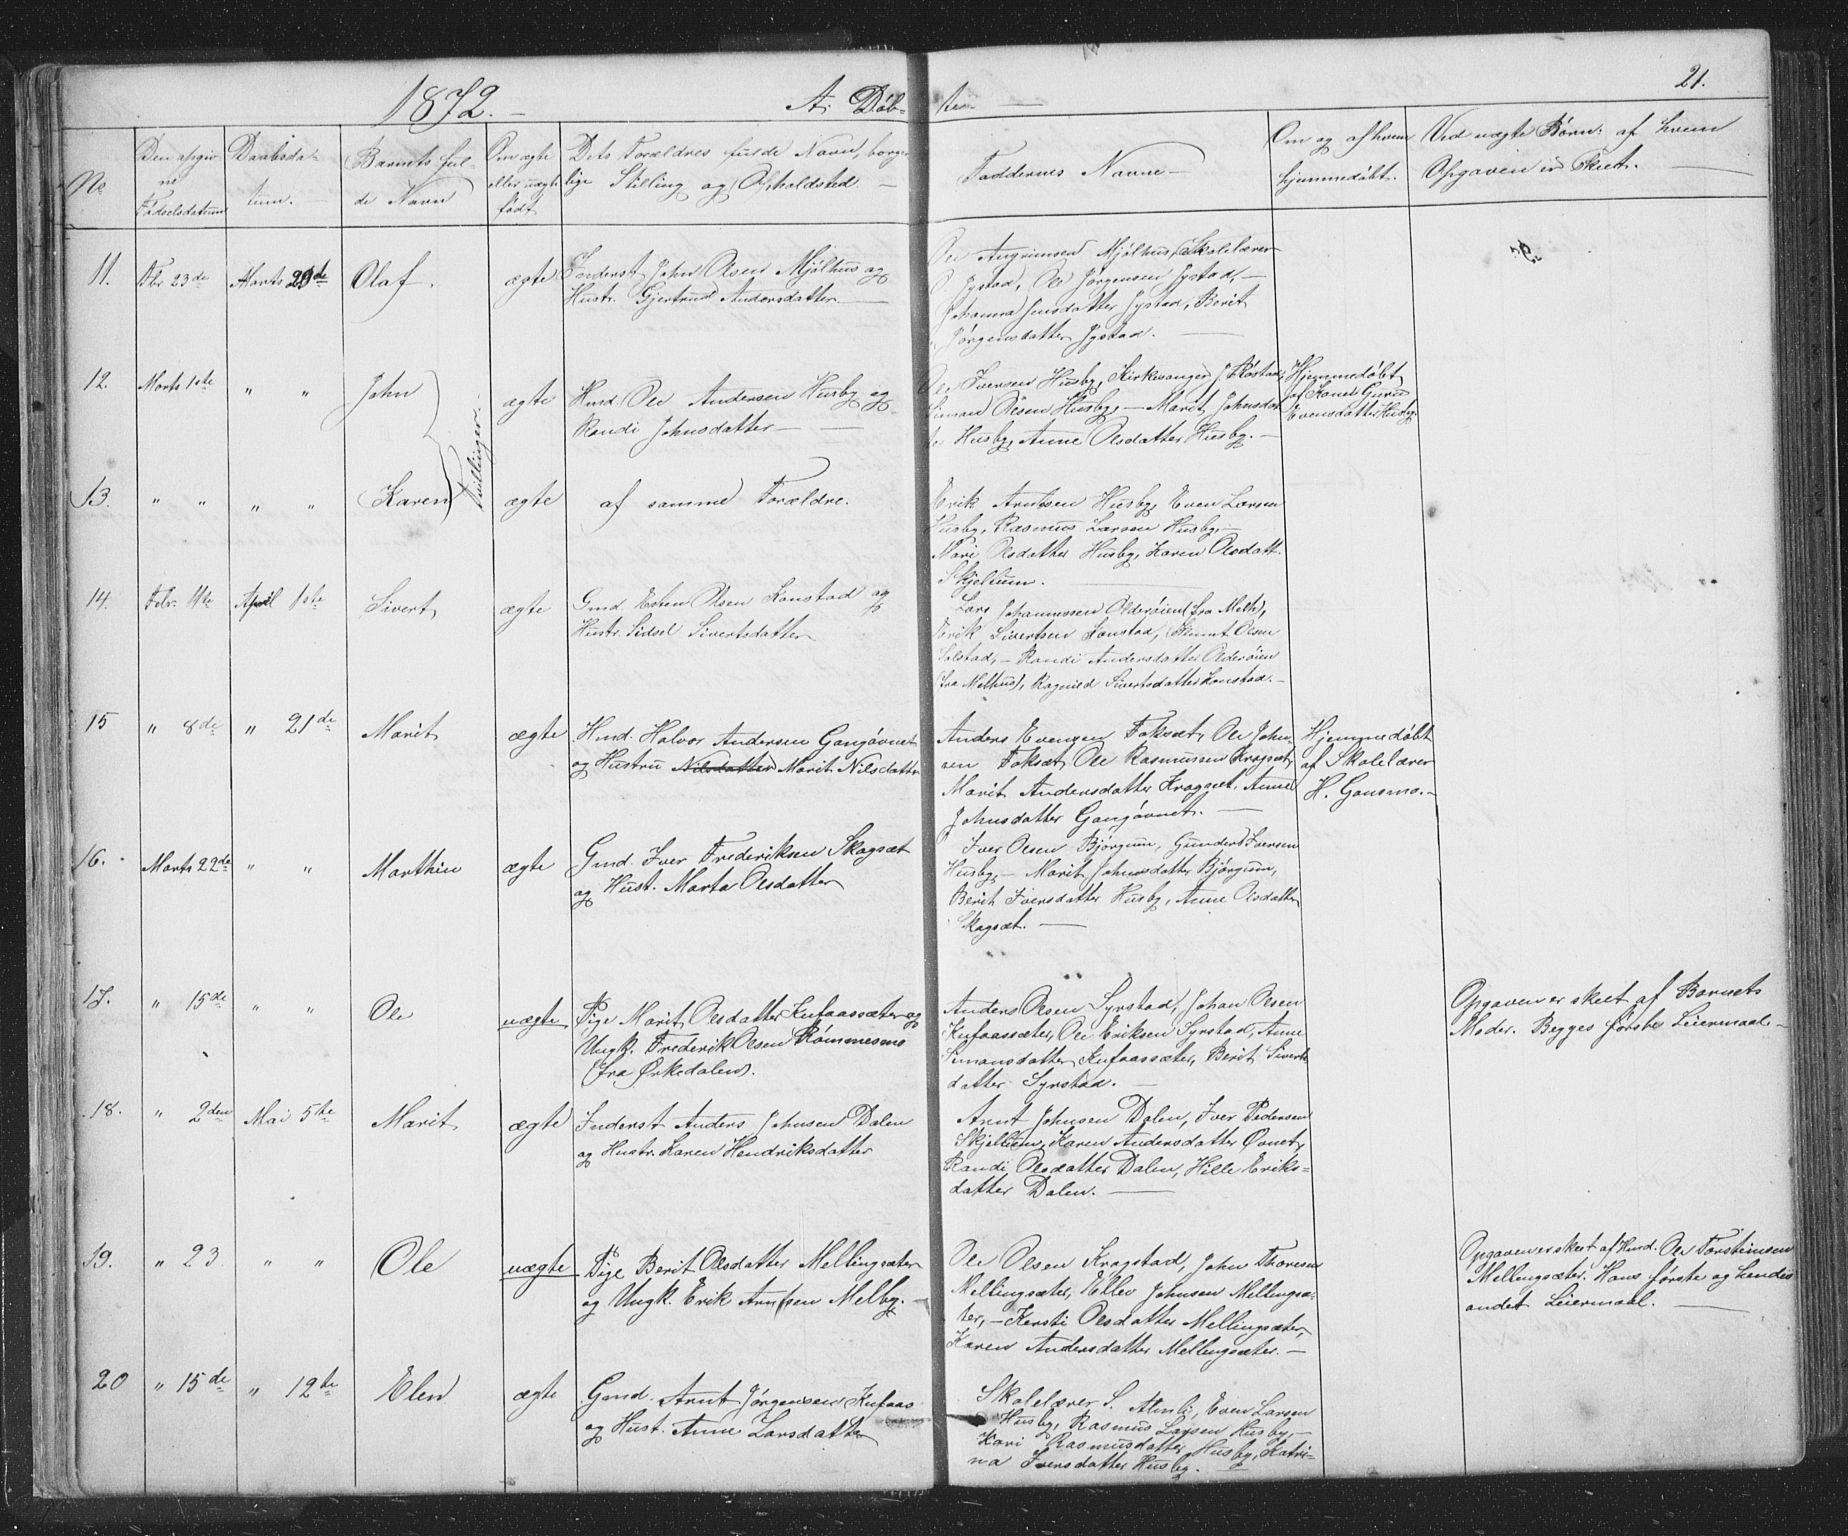 1872. A. Døb- te. 21.
No
Den opgiv-
ne
Fødselsdatum
Daabsda-
tum.
Barnets ful-
de Navn
Om ægte
eller uægte
født
Dets Forældres fulde Navn, borger-
lige Stilling og Opholdsted.
Faddernes Navne
Om og af hvem
hjemmedøbt.
Ved uægte Børn: af hvem
Opgaven er skeet.
11. Fbr. 23de Marts 29de Olaf. ægte
Inderst John Olsen Mjölhus og
Hustr. Gjertrud Andersdatter.
Ole Angrimsen Mjölhus, Skolelærer
Jystad, Ole Jörgensen Jystad,
Johanna Jensdatter Jystad, Berit
Jörgensdatter Jystad.
12. Marts 1ste " " John ægte
Tvillinger.
Hmd. Ole Andersen Husby og
Randi Johnsdatter
Ole Iversen Husby, Kirkesanger J. Röstad,
Simon Olsen Husby, — Marit Johnsdat-
ter Husby, Anne Olsdatter Husby.
Hjemmedöbt
af Kone Guru
Evensdatter Husby.
13. " " " " Karen ægte
af samme Forældre.
Erik Arntsen Husby, Even Larsen
Husby, Rasmus Larsen Husby,
Mari Olsdatter Husby, Karen Olsdatt.
Skjetlum.
14. Febr. 11te April 1ste Sivert ægte
Gmd. Esten Olsen Konstad og
Hustr. Sidsel Sivertsdatter
Lars Johannesen Olderöien (fra Melh),
Erik Sivertsen Konstad, Olsen
Solstad, — Randi Andersdatter Olderöien
(fra Melhus), Ragnild Sivertsdatter Konstad.
15 " 8de " 21de Marit ægte
Hmd. Halvor Andersen Gangövnet
og Hustru Nilsdatter Marit Nilsdatter
Anders Evensen Foksæt, Ole John-
sen Foksæt, Ole Rasmussen Kragset,
Marit Andersdatter Kragset, Anne
Johnsdatter Gangövnet.
Hjemmedöbt
af Skolelærer
H. Gausmo.
16. Marts 22de " " Marthin ægte
Gmd. Iver Frederiksen Skagsæt
og Hust. Marta Olsdatter
Iver Olsen Björgum, Gunder Iversen
Husby, — Marit Johnsdatter Björgum,
Berit Iversdatter Husby, Anne Olsdatter
Skagsæt.
17. " 15de " " Ole uægte
Pige Marit Olsdatter Kufaassæter og
Ungk. Frederik Olsen Römmesmo
(fra Ørkedalen).
Anders Olsen Syrstad, Johan Olsen
Kufaassæter, Ole Eriksen Syrstad, Anne
Simonsdatter Kufaassæter, Berit Siverts-
datter Syrstad.
Opgaven er skeet af Barnets
Moder. Begges förste Leiermaal.
18. " 2den Mai 5te Marit ægte
Inderst Anders Johnsen Dalen
og Hustr. Karen Hendriksdatter
Arnt Johnsen Dalen, Iver Pedersen
Skjetlum, Karen Andersdatter Övnet,
Randi Olsdatter Dalen, Hille Eriks-
datter Dalen.
19. " 23 " " Ole uægte
Pige Berit Olsdatter Mellingsæter
og Ungk. Erik Arntsen Melby.
Ole Olsen Kragstad, John Thoresen
Mellingsæter, Ellev Johnsen Mellingsæ-
ter, — Kersti Olsdatter Mellingsæter,
Karen Andersdatter Mellingsæter.
Opgaven er skeet af Hmd. Ole Torsteinsen
Mellingsæter. Hans förste og hendes
andet Leiermaal.
20 " 15de " 12te Elen ægte
Gmd. Arnt Jörgensen Kufaas
og Hust. Anne Larsdatter
Skolelærer S. Almli, Even Larsen
Husby, Rasmus Larsen Husby,
Kari Rasmusdatter Husby, Katri-
na Iversdatter Husby.